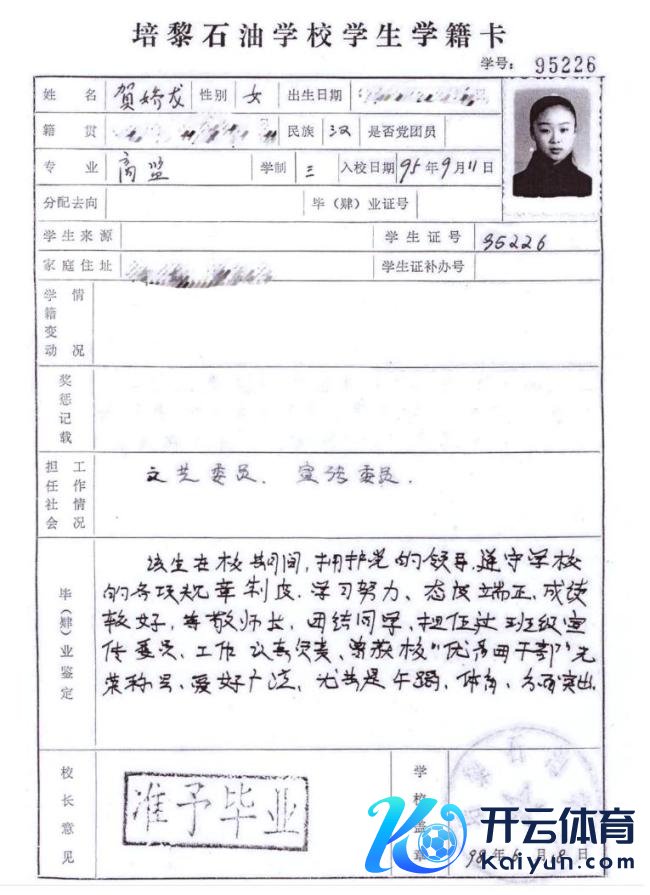 培黎石油学校学生学籍卡
学号: 95226
姓名 贺娇龙 性别 女 出生日期
籍贯 民族 汉 是否党团员
专业 商监 学制 三 入校日期 95年9月11日
分配去向 毕(肄)业证号
学生来源 学生证号 95226
家庭住址 学生证补办号
学籍变动情况
奖惩记载
担任社会工作情况 文艺委员、宣传委员.
毕(肄)业鉴定
该生在校期间,拥护党的领导,遵守学校
的各项规章制度.学习努力、态度端正,成绩
较好,尊敬师长,团结同学,担任过班级宣
传委员、工作认真负责、曾获校"优秀团干部"光
荣称号、爱好广泛、尤其是午蹈、体育、方面突出.
校长意见 准予毕业 学校盖章
98年6月 日
开云体育
Kaiyun.com